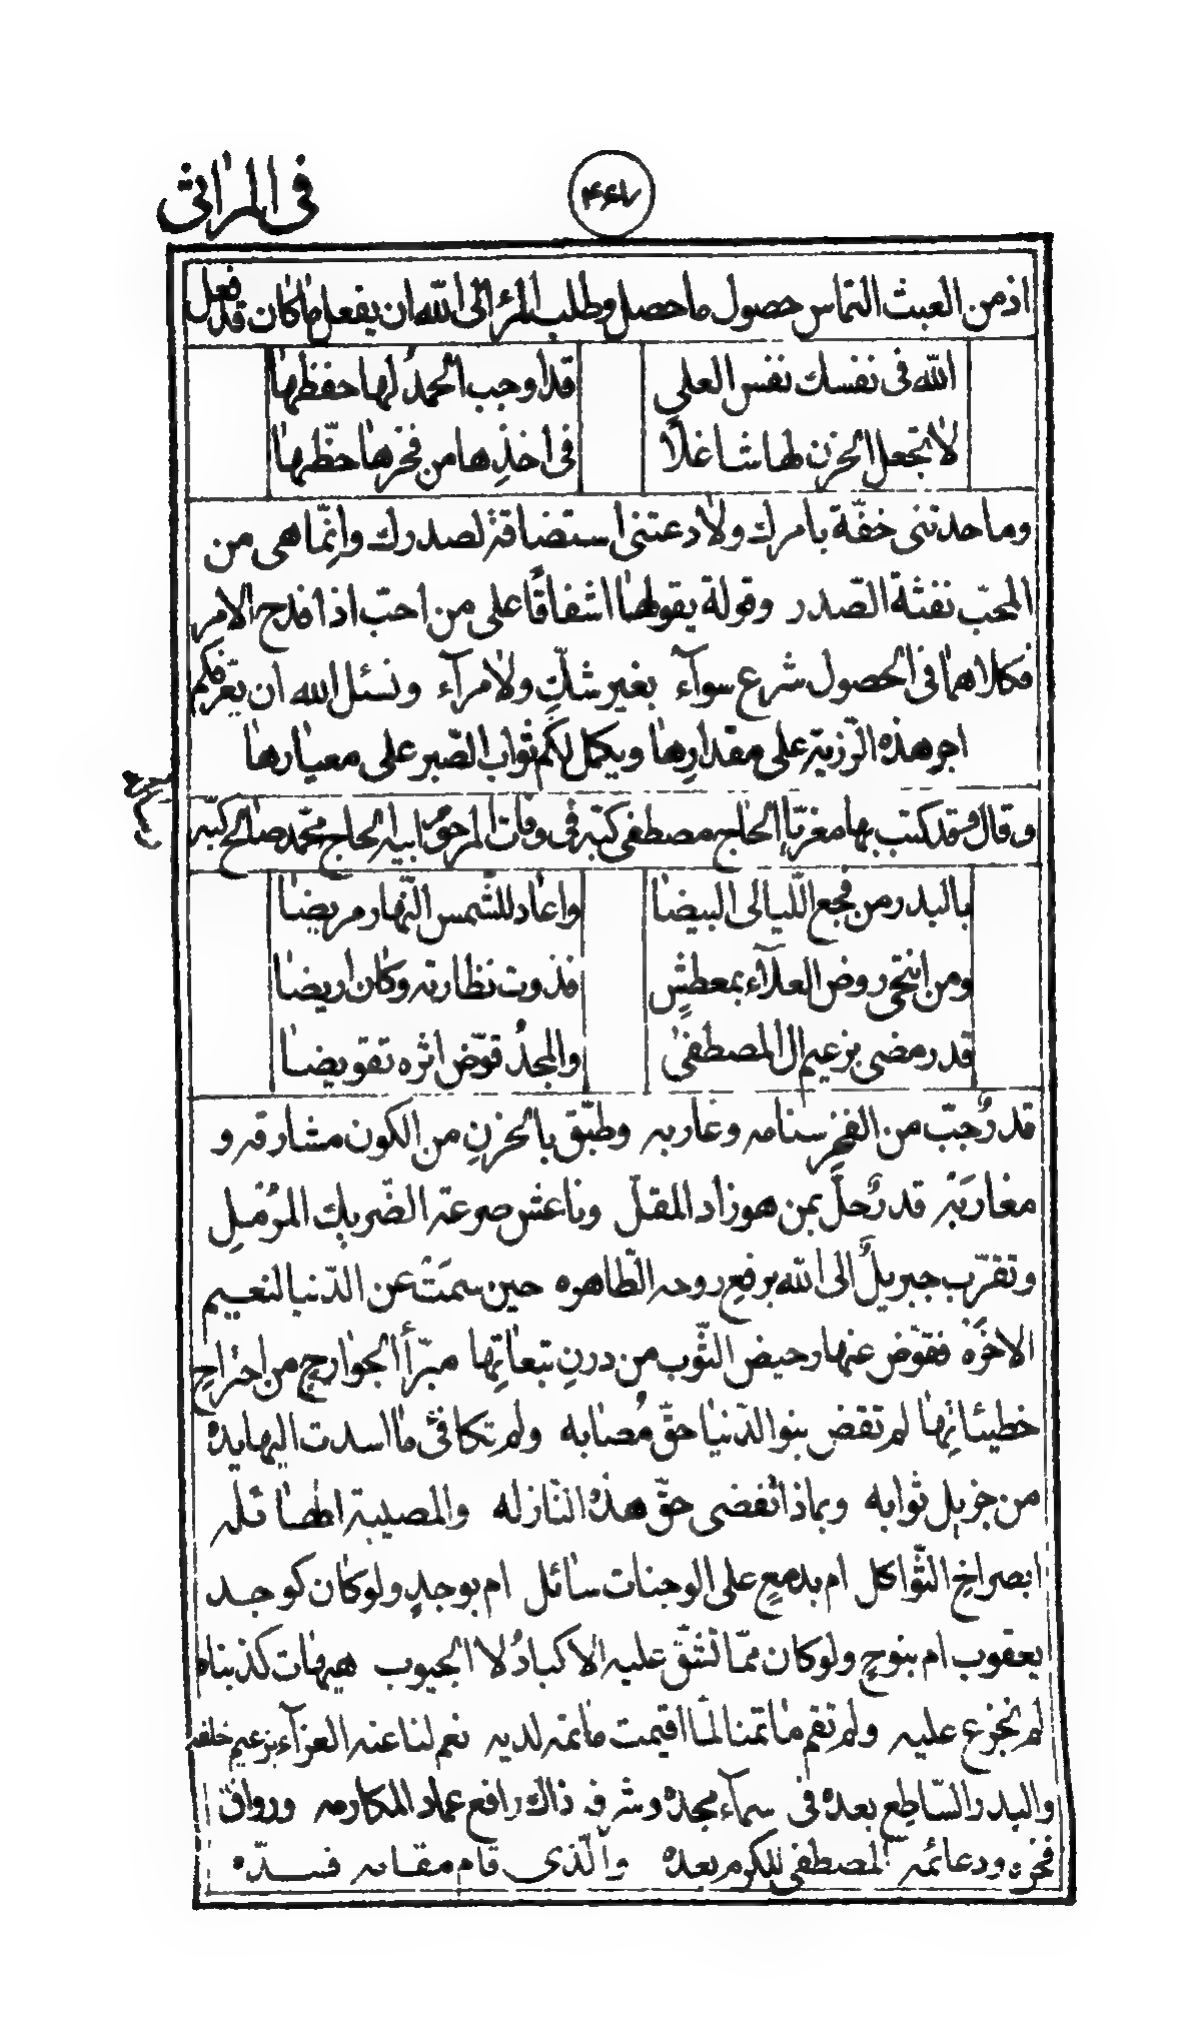 في المراثي
۴۶۷
اذ من العبث التماس حصول ما حصل وطلب المرء الى الله ان يفعل ما كان قد فعل
الله في نفسك نفس العلي قد اوجب الحمد لها حفظها
لا تجعل الحزن لها شاغلا في اخذها من فخرها حظّها
وما حدتنى خفّة بامرك ولا دعتنى استضاقة لصدرك وانّما هى من
المحبّ نفثة الصّدر وقولة يقولها اشفاقًا على من احبّ اذا فدح الامر
فكلاهما فى الحصول شرع سوآء بغير شكّ ولا مرآء ونسئل الله ان يقرّ لكم
اجر هذه الرّزية على مقدارها ويكمل لكم ثواب الصّبر على معيارها
وقال وقد كتب بها معزيّا الحاج مصطفى كبّه فى وفات المرحوم ابيه الحاج محمّد صالح كبّه
بالبدر من فجع اللّيالى البيضا واعاد للشّمس النّهار مريضا
ومن انتحى روض العلآء بمعطش فذوت نظارته وكان اريضا
قدر مضى بزعيم ال المصطفى والمجد قوّض اثره تقويضا
قدرٌ جبّ من الفخر سنامه وغاربه وطبّق بالحزن من الكون مشارقه و
مغاربَه قدرٌ حلّ بمن هو زاد المقلّ وناعش صرعة الضّريك المرمل
وتقرّب جبريلٌ الى الله برفع روحه الطّاهره حين سمَتْ عن الدّنيا لنعيم
الاخره فقوّض عنها رحيض الثّوب من درن تبعاتها مبرّأ الجوارح من اجتراح
خطيئاتها لم تقض بنو الدّنيا حقّ مُصابه ولم تكافئ ما اسدت اليها يده
من جزيل ثوابه وبماذا تُقضى حقّ هذه النّازله والمصيبة الهائله
ابصراخ الثّواكل ام بدمعٍ على الوجنات سائل ام بوجدٍ ولو كان كوجد
يعقوب ام بنوحٍ ولو كان ممّا تشقّ عليه الاكبادُ لا الجيوب هيهات كذبناه
لم نجزع عليه ولم تقم ماتمنا لمّا اقيمت ماتمه لديه نعم لنا عنه العزآء بزعيم خلفه
والبدر السّاطع بعده فى سمآء مجده وشرفه ذاك رافع عماد المكارمه ورواق
فخره ودعائمه المصطفى للكرم بعده والّذى قام مقامه فسدّه